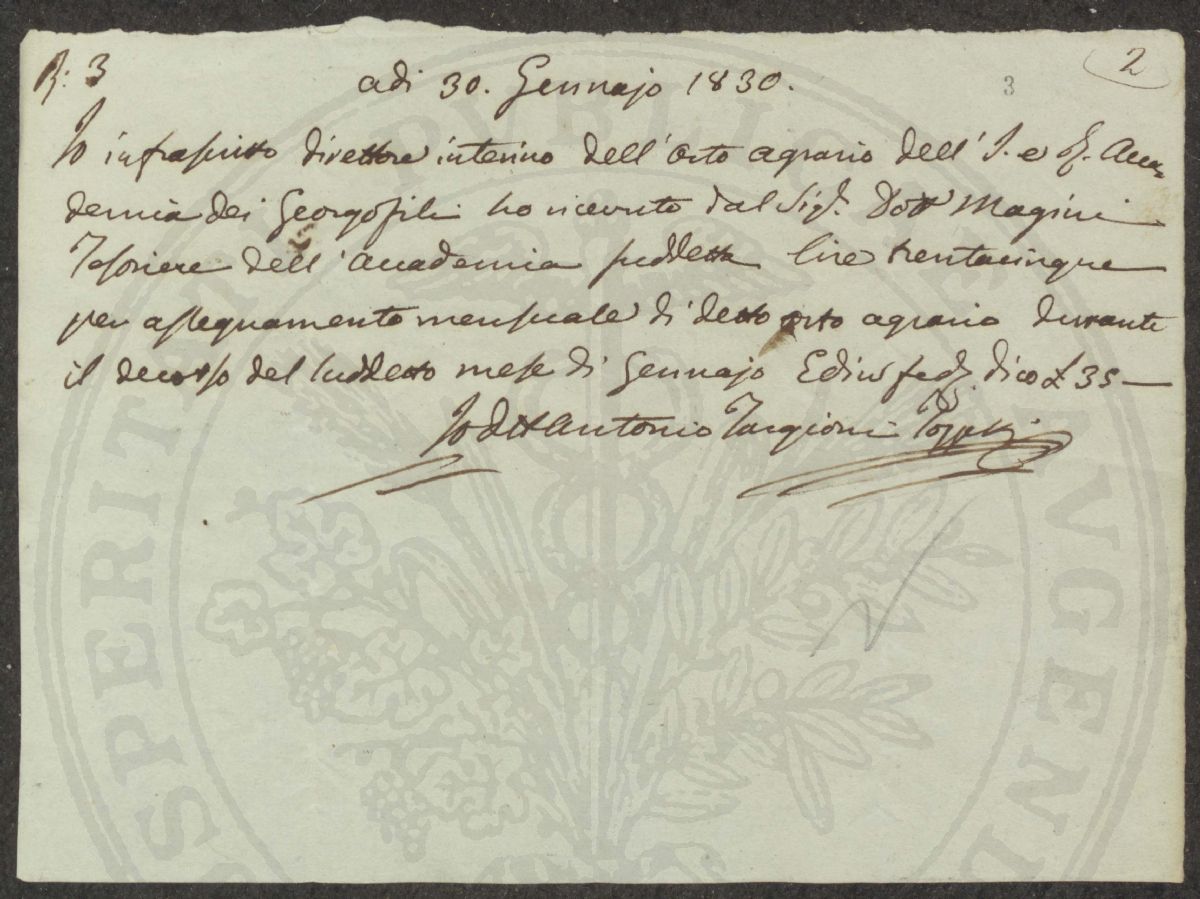 R: 3
2
3
adì 30. Gennajo 1830.
Io infrascritto direttore interino dell'orto agrario dell'I. e R. Acca-
demia dei Georgofili ho ricevuto dal Sig.r Dott Magini
Tesoriere dell'Accademia suddetta lire trentacinque
per assegnamento mensuale di detto orto agrario durante
il decorso del suddetto mese di Gennajo dico £ 35 —
Io Dtt Antonio Targioni Tozzetti
PUBLICAE
PROSPERITATI
AUGENDAE